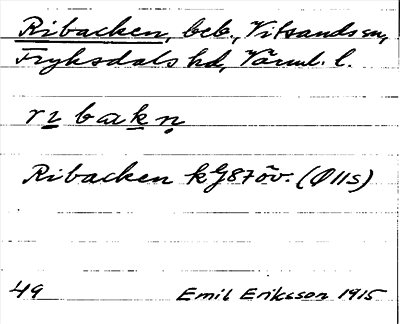 Ribacken, beb., Vitsands sn,
Fryksdals hd, Värml. l.
rı bakn
Ribacken kG87öv. (Ø11s)
49 Emil Eriksson 1915